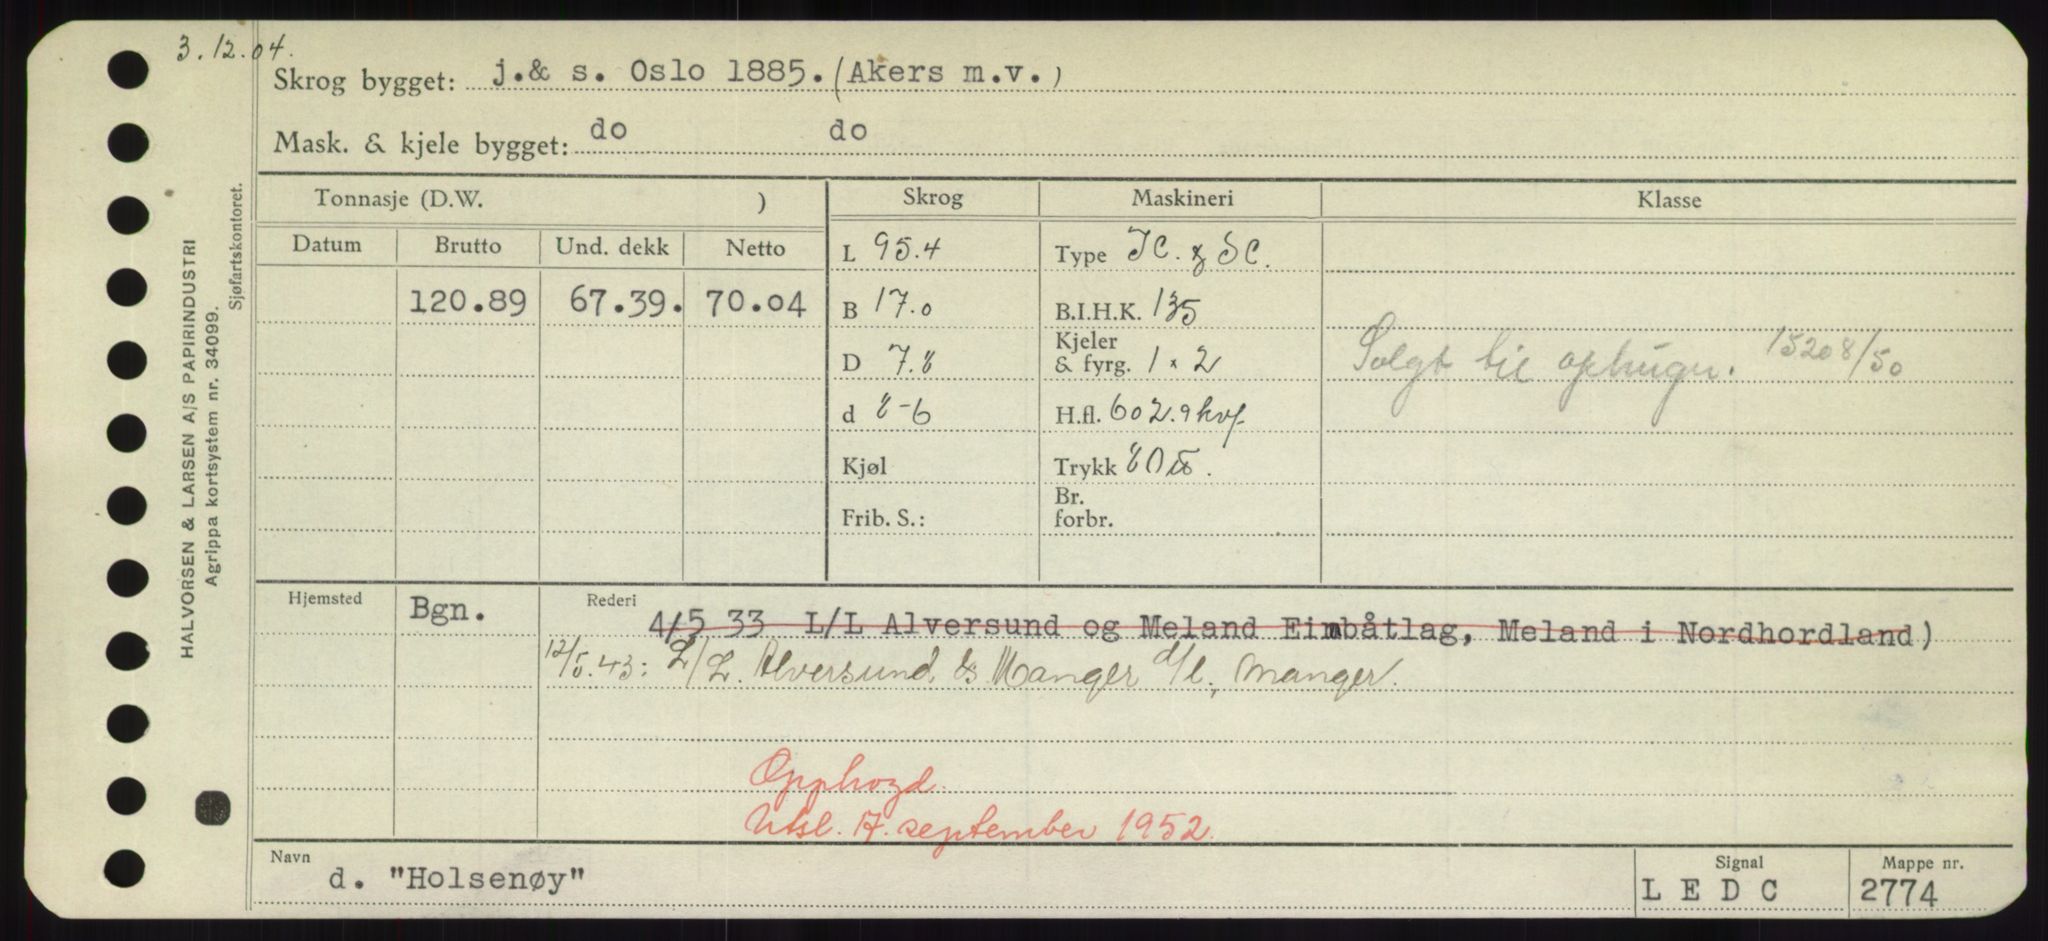 3.12.04.
Skrog bygget: j.& s. Oslo 1885. (Akers m.v.)
Mask. & kjele bygget: do do
Tonnasje (D.W. ) Skrog Maskineri Klasse
Datum Brutto Und. dekk Netto
L 95.4 Type
120.89 67.39. 70.04 B 17.0 B.I.H.K. 135
D Kjeler & fyrg. 1 × 2 Solgt til 
d H.fl. 602.9 kvf
Kjøl Trykk
Frib. S.: Br. forbr.
Hjemsted Bgn. Rederi 4/5 33 L/L Alversund og Meland Eimbåtlag, Meland i Nordhordland)
12/5.43: L/L. Alversund & Manger d/l., Manger.
Opphogd.
Utsl. 17. september 1952.
Navn d. "Holsenøy" Signal L E D C Mappe nr. 2774
HALVORSEN & LARSEN A/S PAPIRINDUSTRI
Agrippa kortsystem nr. 34099.
Sjøfartskontoret.